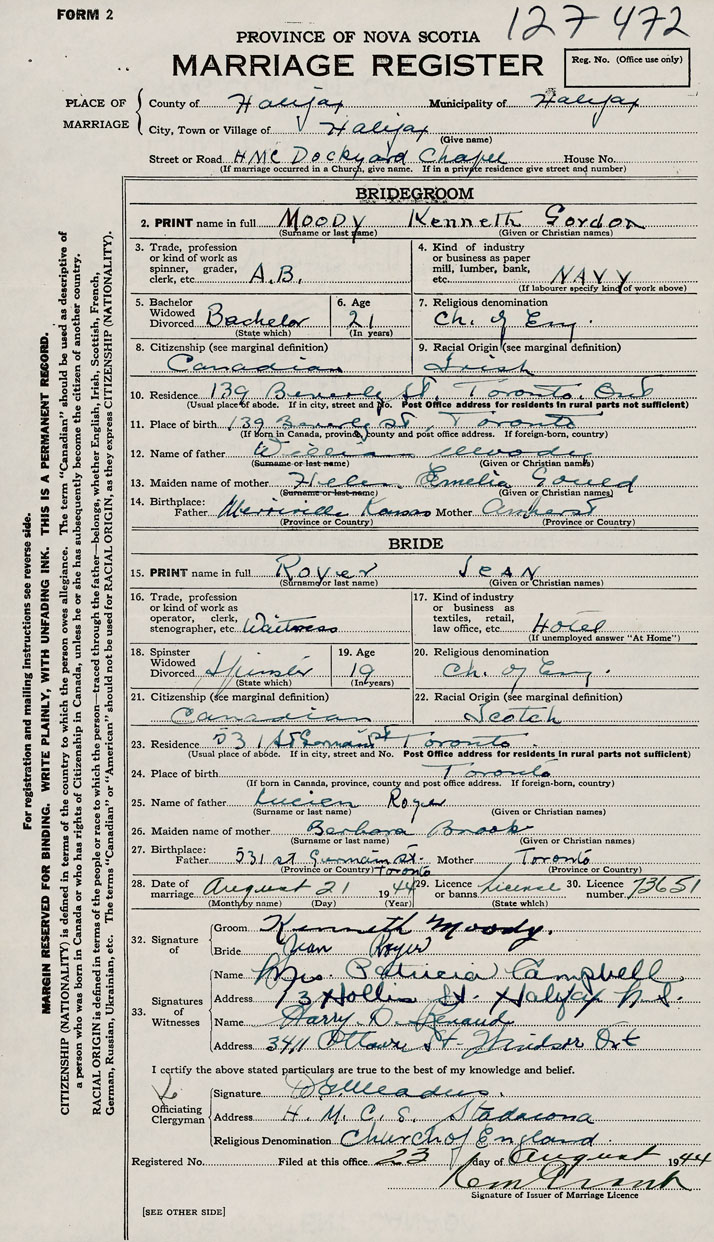 FORM 2
127 472
PROVINCE OF NOVA SCOTIA
MARRIAGE REGISTER
Reg. No. (Office use only)
PLACE OF MARRIAGE
County of Halifax Municipality of Halifax
City, Town or Village of Halifax
(Give name)
Street or Road HMC Dockyard Chapel House No.
(If marriage occurred in a Church, give name. If in a private residence give street and number)
BRIDEGROOM
2. PRINT name in full Moody Kenneth Gordon
(Surname or last name) (Given or Christian names)
3. Trade, profession or kind of work as spinner, grader, clerk, etc. A.B.
4. Kind of industry or business as paper mill, lumber, bank, etc. NAVY
(If labourer specify kind of work above)
5. Bachelor Widowed Divorced Bachelor
(State which)
6. Age 21
(In years)
7. Religious denomination Ch. of Eng.
8. Citizenship (see marginal definition) Canadian
9. Racial Origin (see marginal definition) Irish
10. Residence 139 Beverly St. Toronto. Ont
(Usual place of abode. If in city, street and No. Post Office address for residents in rural parts not sufficient)
11. Place of birth 139 Beverly St, Toronto
(If born in Canada, province, county and post office address. If foreign-born, country)
12. Name of father William Moody
(Surname or last name) (Given or Christian names)
13. Maiden name of mother Helen Emelia Gould
(Surname or last name) (Given or Christian names)
14. Birthplace: Father Kansas Mother Amherst
(Province or Country) (Province or Country)
BRIDE
15. PRINT name in full Royer Jean
(Surname or last name) (Given or Christian names)
16. Trade, profession or kind of work as operator, clerk, stenographer, etc. Waitress
17. Kind of industry or business as textiles, retail, law office, etc. Hotel
(If unemployed answer "At Home")
18. Spinster Widowed Divorced Spinster
(State which)
19. Age 19
(In years)
20. Religious denomination Ch. of Eng.
21. Citizenship (see marginal definition) Canadian
22. Racial Origin (see marginal definition) Scotch
23. Residence 531 St Germain St Toronto.
(Usual place of abode. If in city, street and No. Post Office address for residents in rural parts not sufficient)
24. Place of birth Toronto
(If born in Canada, province, county and post office address. If foreign-born, country)
25. Name of father Lucien Royer
(Surname or last name) (Given or Christian names)
26. Maiden name of mother Barbara Brook
(Surname or last name) (Given or Christian names)
27. Birthplace: Father 531 St Germain St. Toronto Mother Toronto
(Province or Country) (Province or Country)
28. Date of marriage August 21 1944
(Month by name) (Day) (Year)
29. Licence or banns License
(State which)
30. Licence number 73651
32. Signature of
Groom Kenneth Moody.
Bride Jean Royer
33. Signatures of Witnesses
Name Mrs. Patricia Campbell
Address 73 Hollis St. Halifax N.S.
Name Harry D. Renaud
Address 3411 Ottawa St. Windsor Ont
I certify the above stated particulars are true to the best of my knowledge and belief.
Officiating Clergyman
Signature
Address H. M. C. S. Stadacona
Religious Denomination Church of England.
Registered No. Filed at this office 23 day of August 1944
Signature of Issuer of Marriage Licence
[SEE OTHER SIDE]
For registration and mailing instructions see reverse side.
MARGIN RESERVED FOR BINDING. WRITE PLAINLY, WITH UNFADING INK. THIS IS A PERMANENT RECORD.
CITIZENSHIP (NATIONALITY) is defined in terms of the country to which the person owes allegiance. The term "Canadian" should be used as descriptive of
a person who was born in Canada or who has rights of Citizenship in Canada, unless he or she has subsequently become the citizen of another country.
RACIAL ORIGIN is defined in terms of the people or race to which the person—traced through the father—belongs, whether English, Irish, Scottish, French,
German, Russian, Ukrainian, etc. The terms "Canadian" or "American" should not be used for RACIAL ORIGIN, as they express CITIZENSHIP (NATIONALITY).